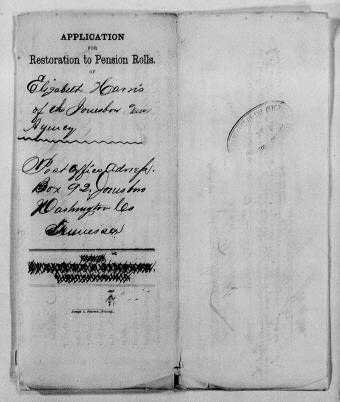 APPLICATION
FOR
Restoration to Pension Rolls.
OF
Elizabeth Harris
of the Jonesboro Tenn
Agency
Post Office Address.
Box 92, Jonesboro
Washington Co
Tennessee